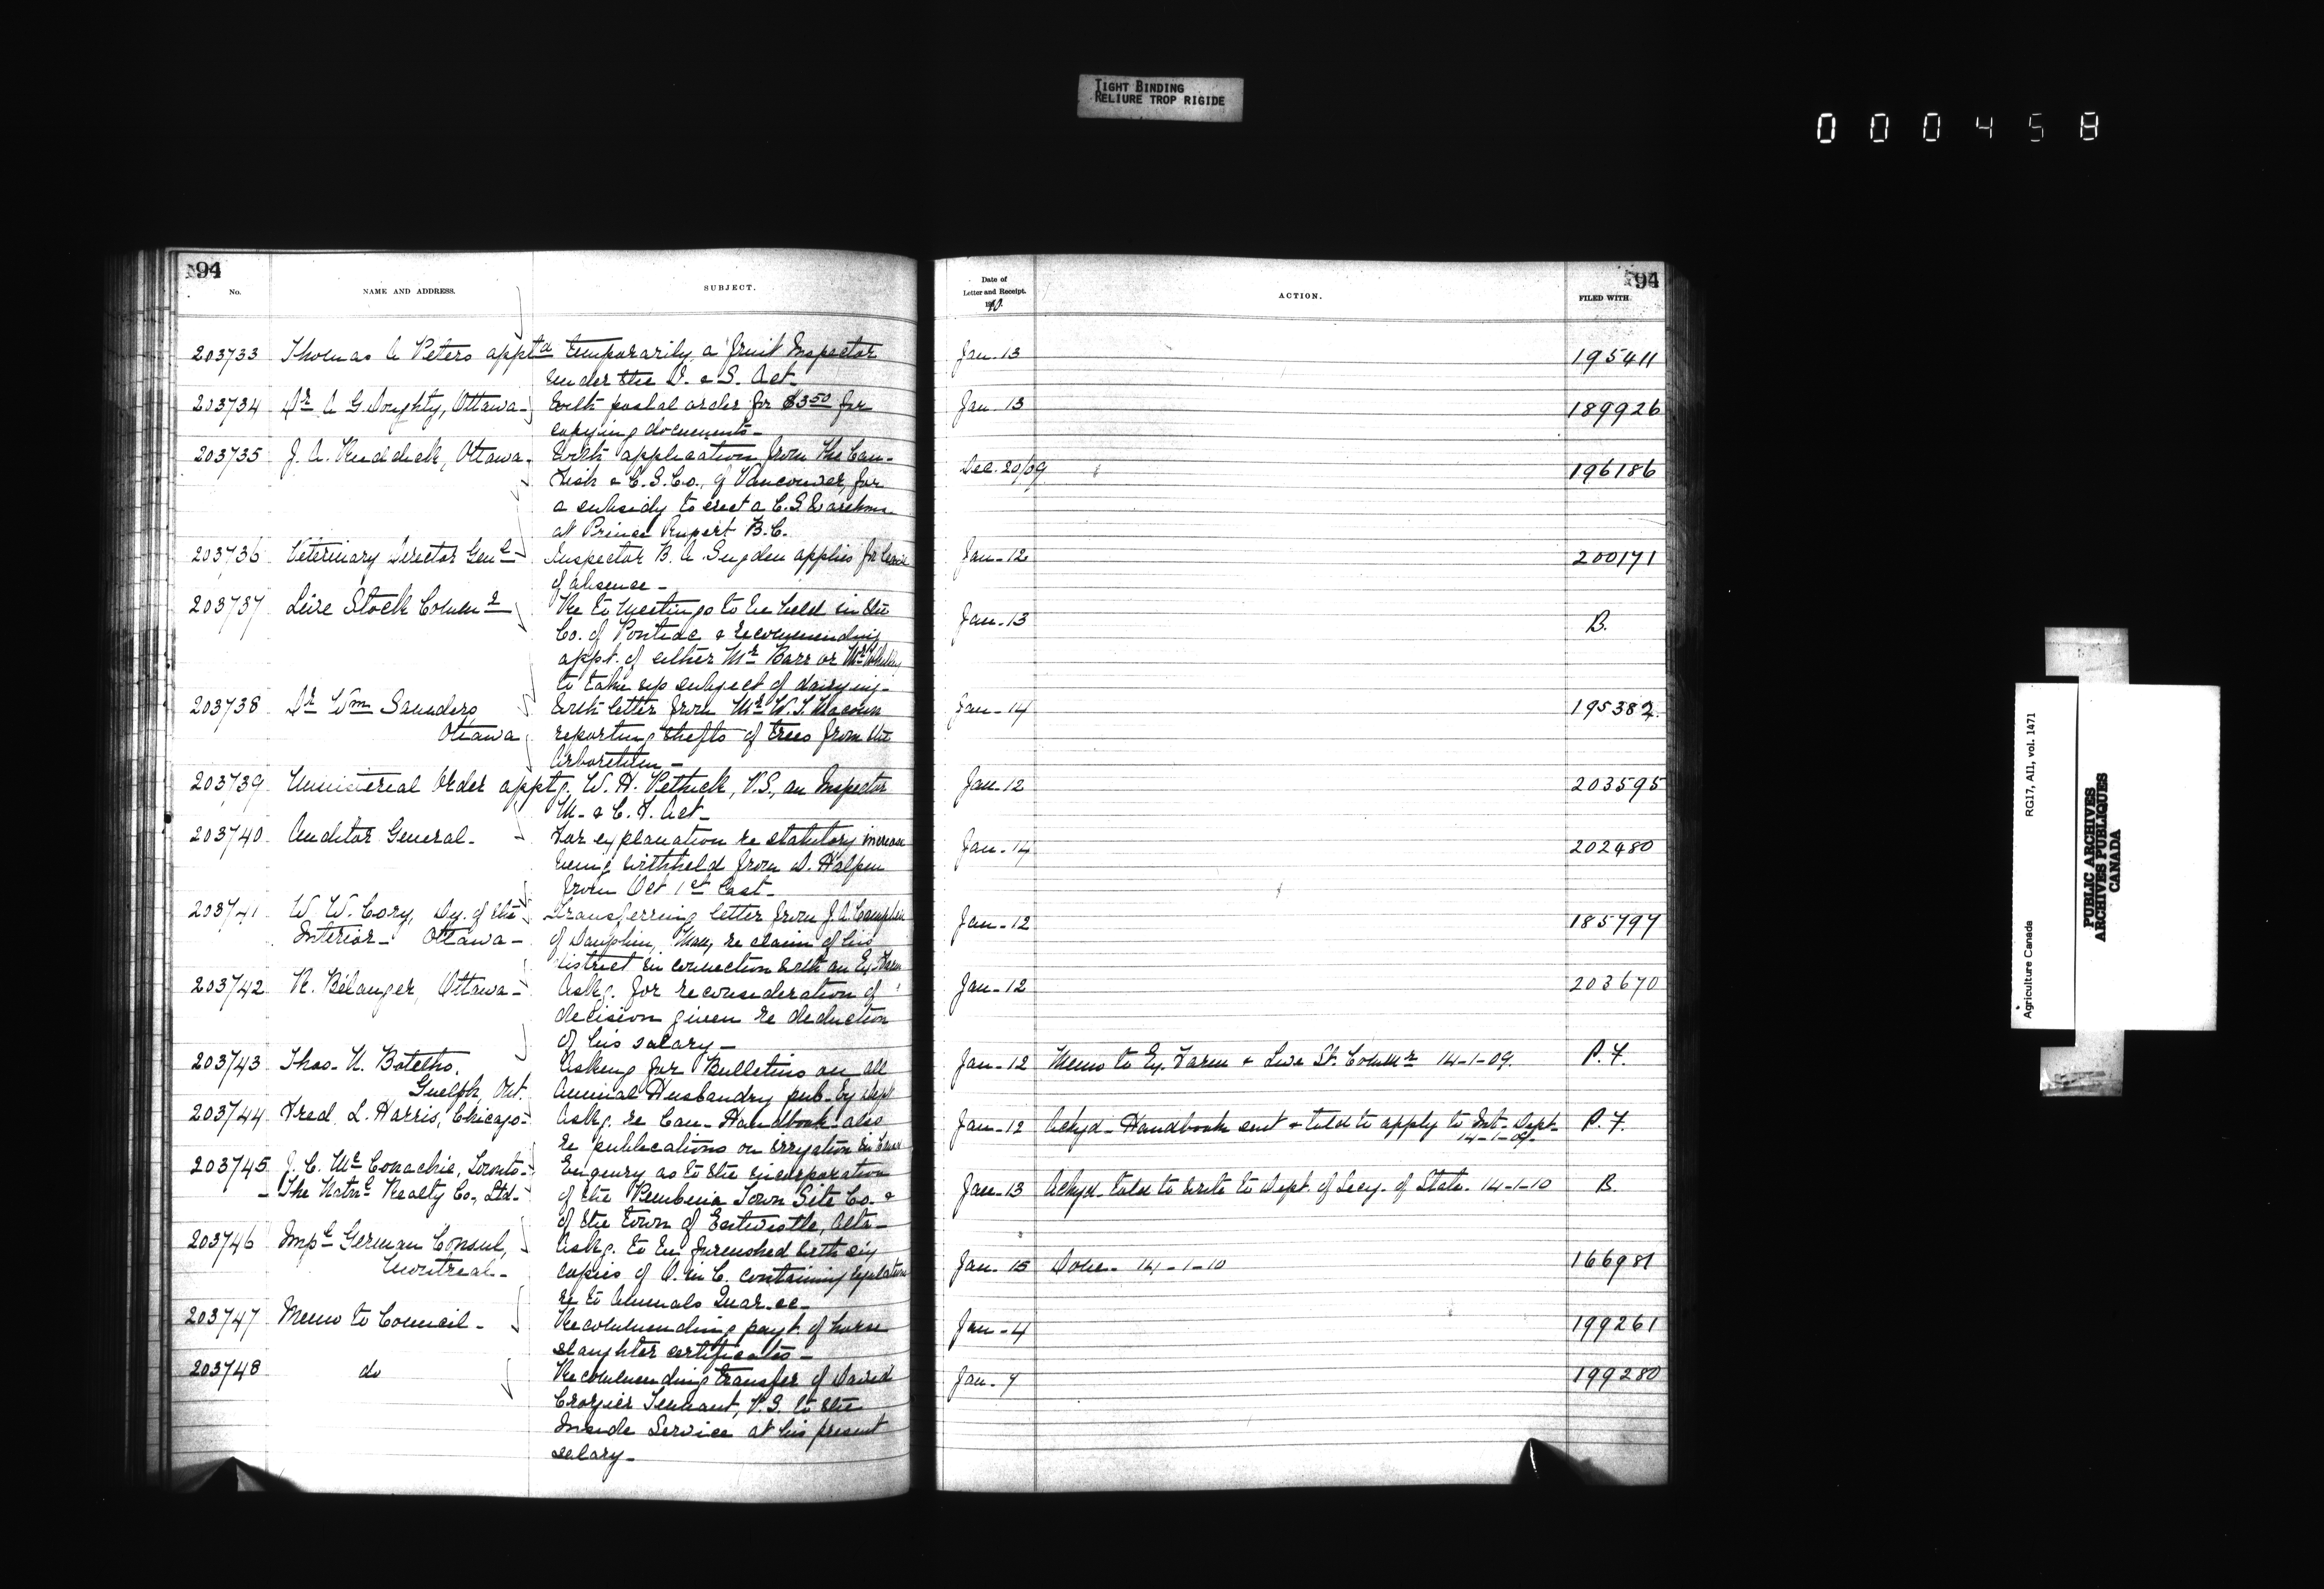 TIGHT BINDING
RELIURE TROP RIGIDE
000458
94
No.
NAME AND ADDRESS.
SUBJECT.
203733 Thomas A Peters apptd temporarily a Fruit Inspector
under the I. & S. Act.
203734 Dr A G Doughty, Ottawa - With postal order for $3.50 for
copying documents -
203735 J. A. Ruddick, Ottawa - With application from the Can.
Fish & C. S. Co., of Vancouver, for
a subsidy to erect a C. S. Warehouse
at Prince Rupert B.C.
203736 Veterinary Director Genl - Inspector B. A. Sugden applies for leave
of absence -
203737 Live Stock Commr Re to meetings to be held in the
Co. of Pontiac & recommending
appt. of either Mr Barr or Mr
to take up subject of dairying -
203738 Dr Wm Saunders With letter from Mr W. T. Macoun
Ottawa reporting thefts of trees from the
Arboretum -
203739 Ministerial Order apptg. W. H. Pethick, V.S., an Inspector
M. & C. F. Act -
203740 Auditor General - For explanation re statutory increase
being withheld from D. Halpin
from Oct 1st last -
203741 W. W. Cory, Dy. of the Transferring letter from J. A. Campbell
Interior - Ottawa - of Dauphin, Man, re claim of his
district in connection with an Ex. Farm
203742 R. Bélanger, Ottawa - Askg. for reconsideration of
decision given re deduction
of his salary -
203743 Thos. H. Botelho, Asking for Bulletins on all
Guelph, Ont. Animal Husbandry pub. by Dept
203744 Fred L. Harris, Chicago - Askg. re Can. Handbook also
re publications on irrigation in
203745 J. C. McConachie, Toronto - Enquiry as to the incorporation
- The Natnl Realty Co., Ltd - of the Pembina Town Site Co. &
of the town of Entwistle, Alta -
203746 Impl German Consul, Askg. to be furnished with six
Montreal - copies of O. in C. containing regulations
re to Animals Quar. &c -
203747 Memo to Council - Recommending payt. of horse
slaughter certificates -
203748 do Recommending transfer of David
Crozier Tennant, V.S. to the
Inside Service at his present
salary -
94
Date of
Letter and Receipt.
1910.
ACTION.
FILED WITH.
Jan. 13 195411
Jan. 13 189926
Dec. 20/09 196186
Jan - 12 200171
Jan - 13 B.
Jan - 14 195382.
Jan - 12 203595
Jan - 14 202480
Jan - 12 185797
Jan - 12 203670
Jan - 12 Memo to Ex. Farm & Live St. Commr 14-1-09. P. F.
Jan - 12 Ackgd - Handbook sent & told to apply to Int. Dept - P. F.
14-1-09.
Jan - 13 Ackgd. told to write to Dept. of Secy. of State. 14-1-10 B.
Jan - 15 Done - 14-1-10 166981
Jan - 4 199261
Jan - 7 199280
Agriculture Canada
RG17, AII, vol. 1471
PUBLIC ARCHIVES
ARCHIVES PUBLIQUES
CANADA